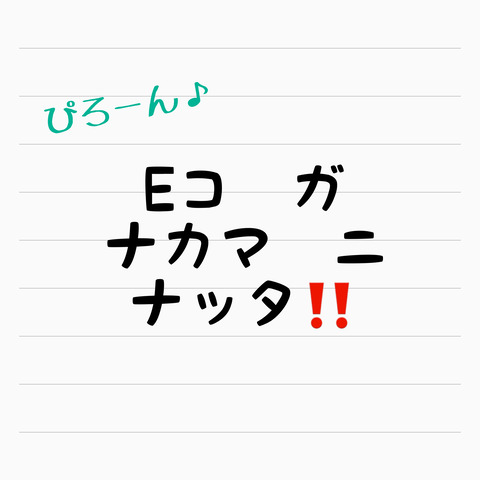 ぴろーん♪
Eコ　ガ
ナカマ　ニ
ナッタ‼